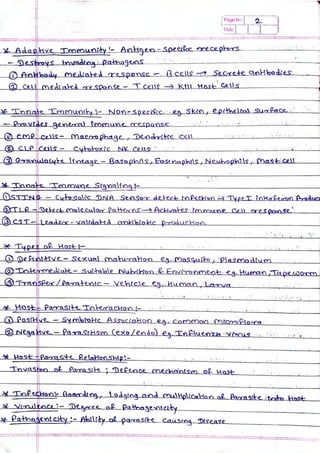 Page No. 2
Date
* Adaptive Immunity :- Antigen - specific receptors
- Destroys Invading pathogens
① Antibody mediated response - B cells → Secrete antibodies
② Cell mediated response - T cells → Kill Host Cells
* Innate Immunity :- Non-specific eg. Skin, epithelial surface.
- Provides general Immune response
① CMP cells - Macrophage, Dendrite Cell
② CLP cells - Cytotoxic NK cells
③ Granulocyte lineage - Basophils, Eosinophils, Neutrophils, Mast cell
* Innate Immune Signaling :-
① STING - Cytosolic DNA Sensor detect Infection → Type I Interferon Produc
② TLR - Detect molecular Patterns → Activates Immune Cell response
③ CST - Leader - validated antibiotic production.
* Types of Host :-
① Definitive - Sexual maturation eg. Mosquito, Plasmodium
② Intermediate - Suitable Nutrition & Environment eg. Human, Tapeworm
③ Transfer / Paratenic - Vehicle eg. Human, Larva
* Host - Parasite Interaction :-
① Positive - Symbiotic Association eg. Common microflora
② Negative - Parasitism (exo/endo) eg. Influenza virus
* Host - Parasite Relationship :-
Invasion of Parasite ; Defence mechanism of Host
* Infection :- Boarding, lodging and multiplication of Parasite Into Host
* Virulence :- Degree of Pathogenicity
* Pathogenicity :- Ability of parasite Causing Disease